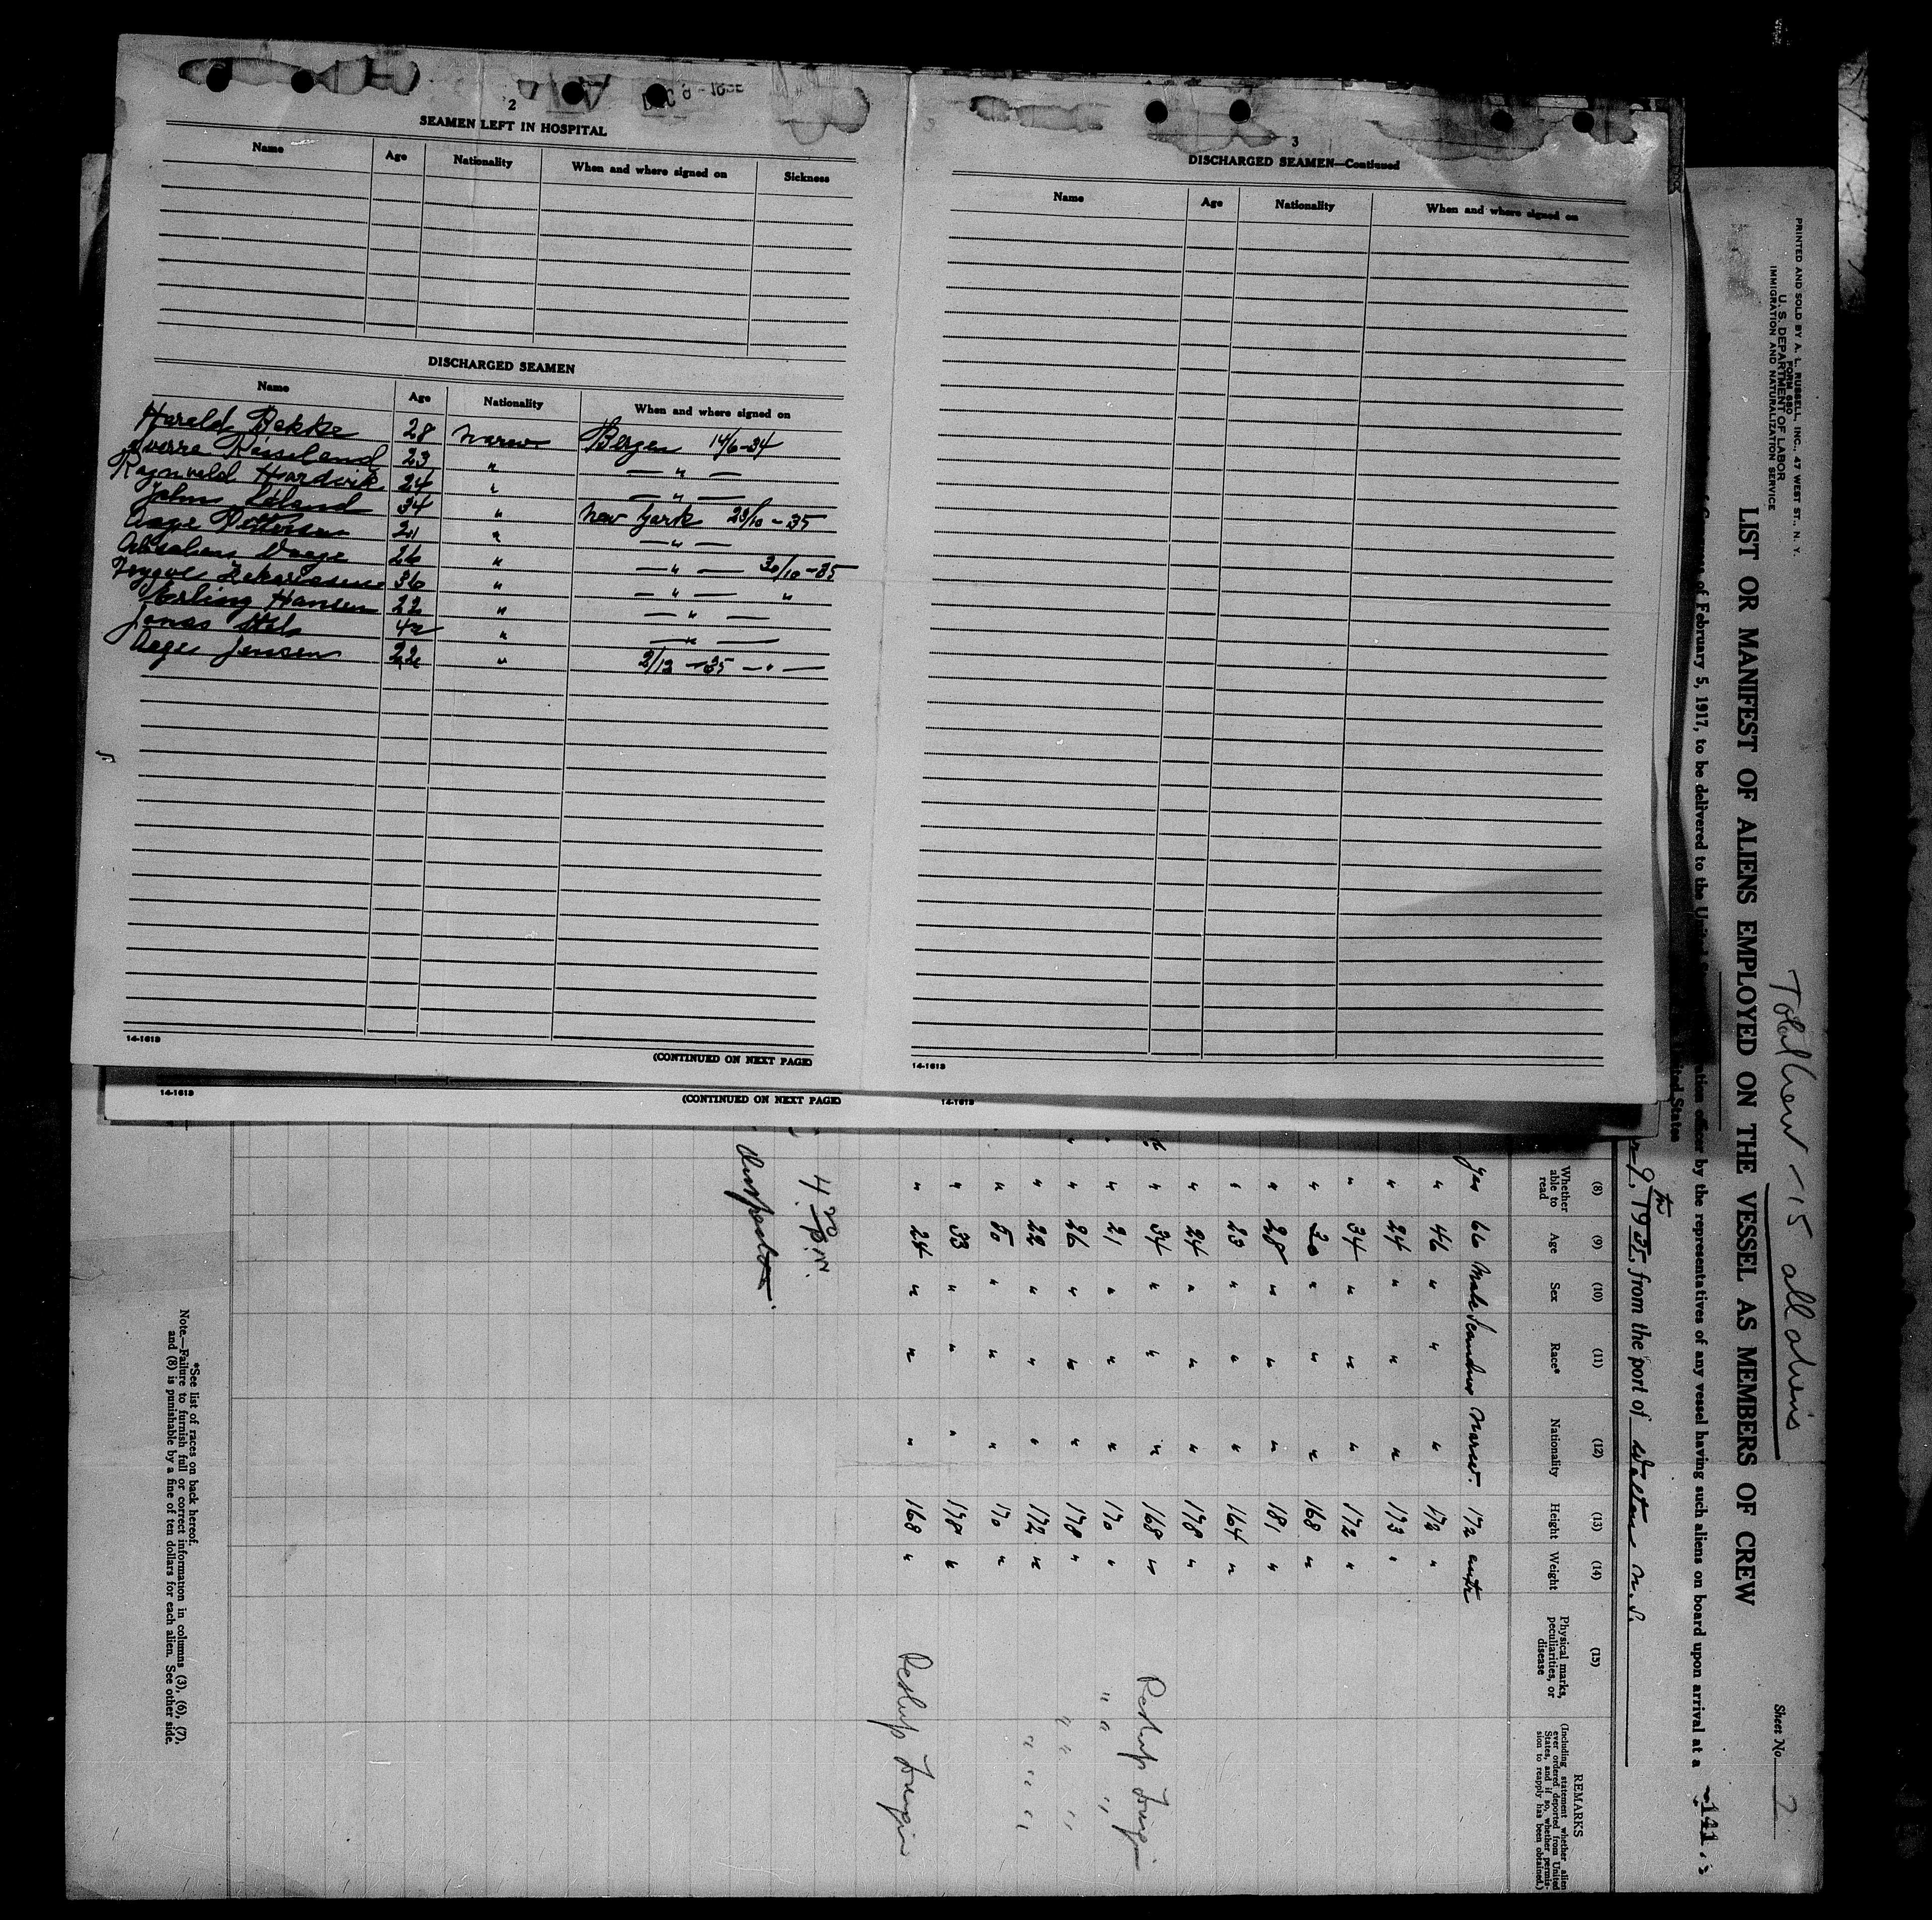 2
DEC 9 -
SEAMEN LEFT IN HOSPITAL
Name Age Nationality When and where signed on Sickness
DISCHARGED SEAMEN
Name Age Nationality When and where signed on
Harald Bakke 28 Norw. Bergen 14/6-34
Sverre Reiseland 23 " — " —
Ragnvald Hardvik 24 " — " —
John 34 " New York 23/10-35
Aage Pettersen 21 " — " —
Absalon Vaage 26 " — " — 30/10-35
Trygve Zakariassen 36 " — " — "
Erling Hansen 22 " — " —
Jonas 42 " — " —
Aage Jensen 22 " 2/12-35 — " —
14-1613
(CONTINUED ON NEXT PAGE)
3
DISCHARGED SEAMEN—Continued
Name Age Nationality When and where signed on
14-1613
14-1613
(CONTINUED ON NEXT PAGE)
14-1613
PRINTED AND SOLD BY A. L. RUSSELL, INC., 47 WEST ST., N. Y.
FORM 680
U. S. DEPARTMENT OF LABOR
IMMIGRATION AND NATURALIZATION SERVICE
Total Crew - 15 all aliens
Sheet No. 2
LIST OR MANIFEST OF ALIENS EMPLOYED ON THE VESSEL AS MEMBERS OF CREW
of February 5, 1917, to be delivered to the United officer by the representatives of any vessel having such aliens on board upon arrival at a
141
United States
9th, 1935, from the port of Walton N.S.
(8) (9) (10) (11) (12) (13) (14) (15)
Whether able to read Age Sex Race* Nationality Height Weight Physical marks, peculiarities, or disease
REMARKS
(Including statement whether alien ever ordered deported from United States, and if so, whether permission to reapply has been obtained.)
Yes 66 Male Norw. 172
" 46 " " " 172 "
" 24 " " " 173 "
" 34 " " " 172 "
" 30 " " " 168 "
" 28 " " " 181 "
" 23 " " " 164 "
" 24 " " " 178 "
" 34 " " " 168 " Reship Foreign
" 21 " " " 170 " " " "
" 26 " " " 178 " " " "
" 22 " " " 172 " " " " "
" 50 " " " 170 "
" 33 " " " 178 "
" 24 " " " 168 " Reship Foreign
Inspector
*See list of races on back hereof.
Note.—Failure to furnish full or correct information in columns (3), (6), (7),
and (8) is punishable by a fine of ten dollars for each alien. See other side.